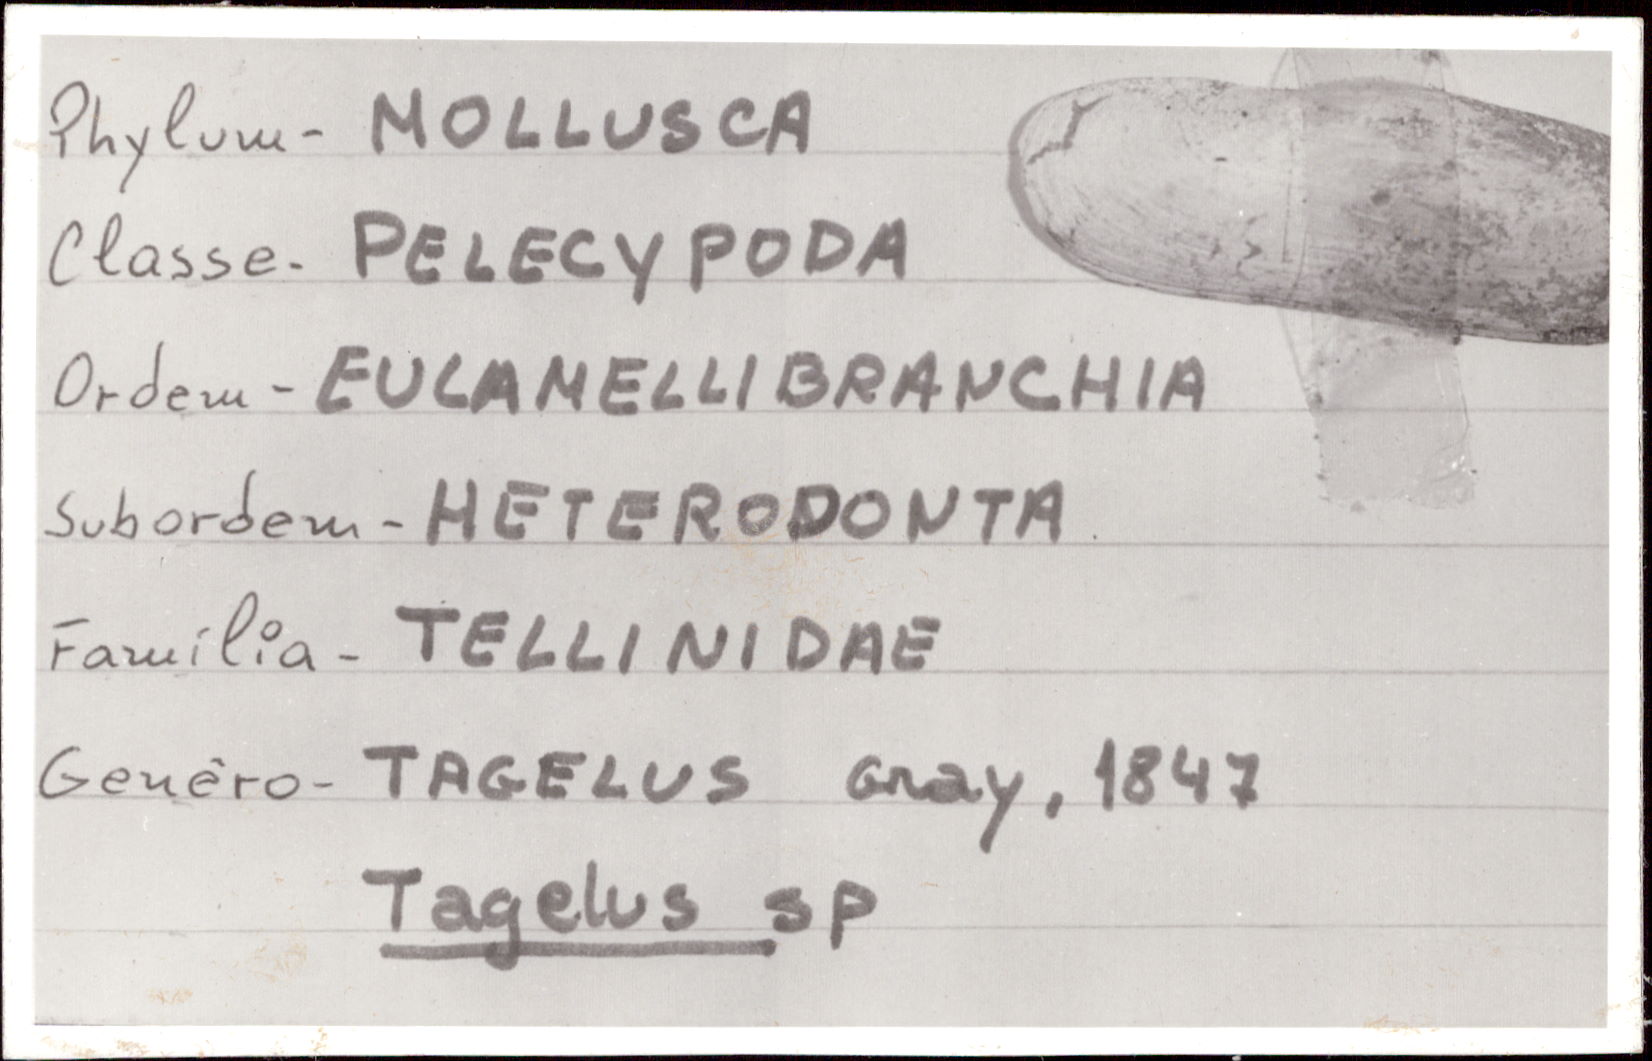 Phylum- MOLLUSCA
Classe- PELECYPODA
Ordem- EULAMELLIBRANCHIA
Subordem- HETERODONTA
Família- TELLINIDAE
Genêro- TAGELUS Gray, 1847
Tagelus sp